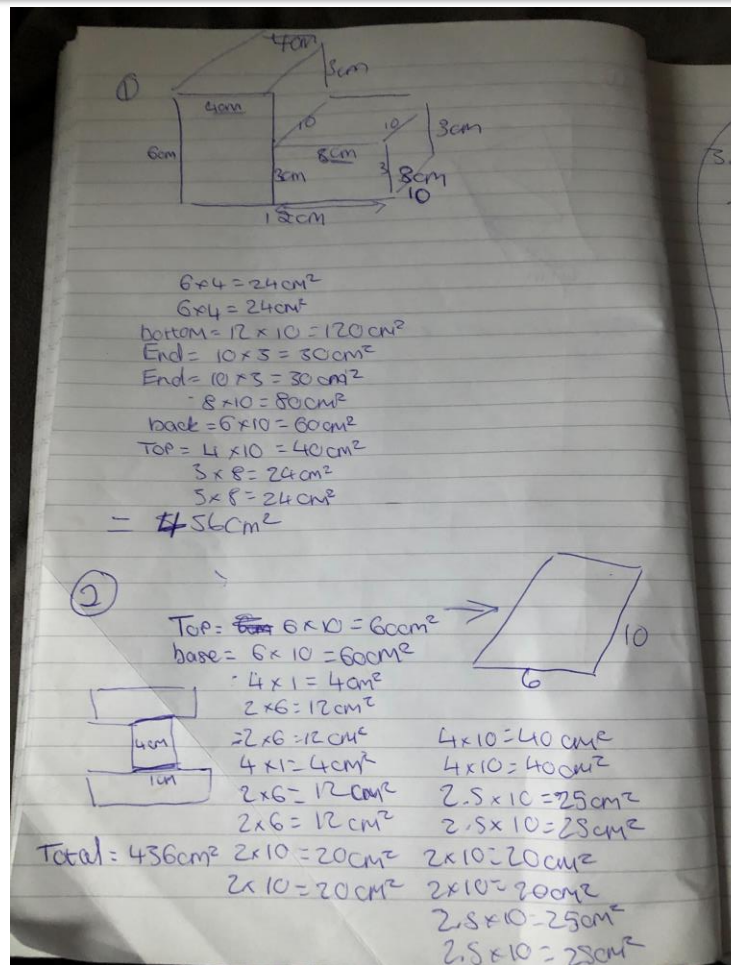 ①
4cm
3cm
4cm
6cm
10
10
3cm
8cm
3cm
3
8cm
10
12cm
3.
6×4 = 24cm²
6×4 = 24cm²
bottom = 12 × 10 = 120cm²
End = 10 × 3 = 30cm²
End = 10 × 3 = 30cm²
8 × 10 = 80cm²
back = 6 × 10 = 60cm²
Top = 4 × 10 = 40cm²
3 × 8 = 24cm²
3 × 8 = 24cm²
= 456cm²
②
Top = 6 × 10 = 60cm²
10
base = 6 × 10 = 60cm²
6
4 × 1 = 4cm²
2 × 6 = 12cm²
4cm
= 2 × 6 = 12cm² 4 × 10 = 40cm²
1cm
4 × 1 = 4cm² 4 × 10 = 40cm²
2 × 6 = 12cm² 2.5 × 10 = 25cm²
2 × 6 = 12cm² 2.5 × 10 = 25cm²
Total = 436cm² 2 × 10 = 20cm² 2 × 10 = 20cm²
2 × 10 = 20cm² 2 × 10 = 20cm²
2.5 × 10 = 25cm²
2.5 × 10 = 25cm²